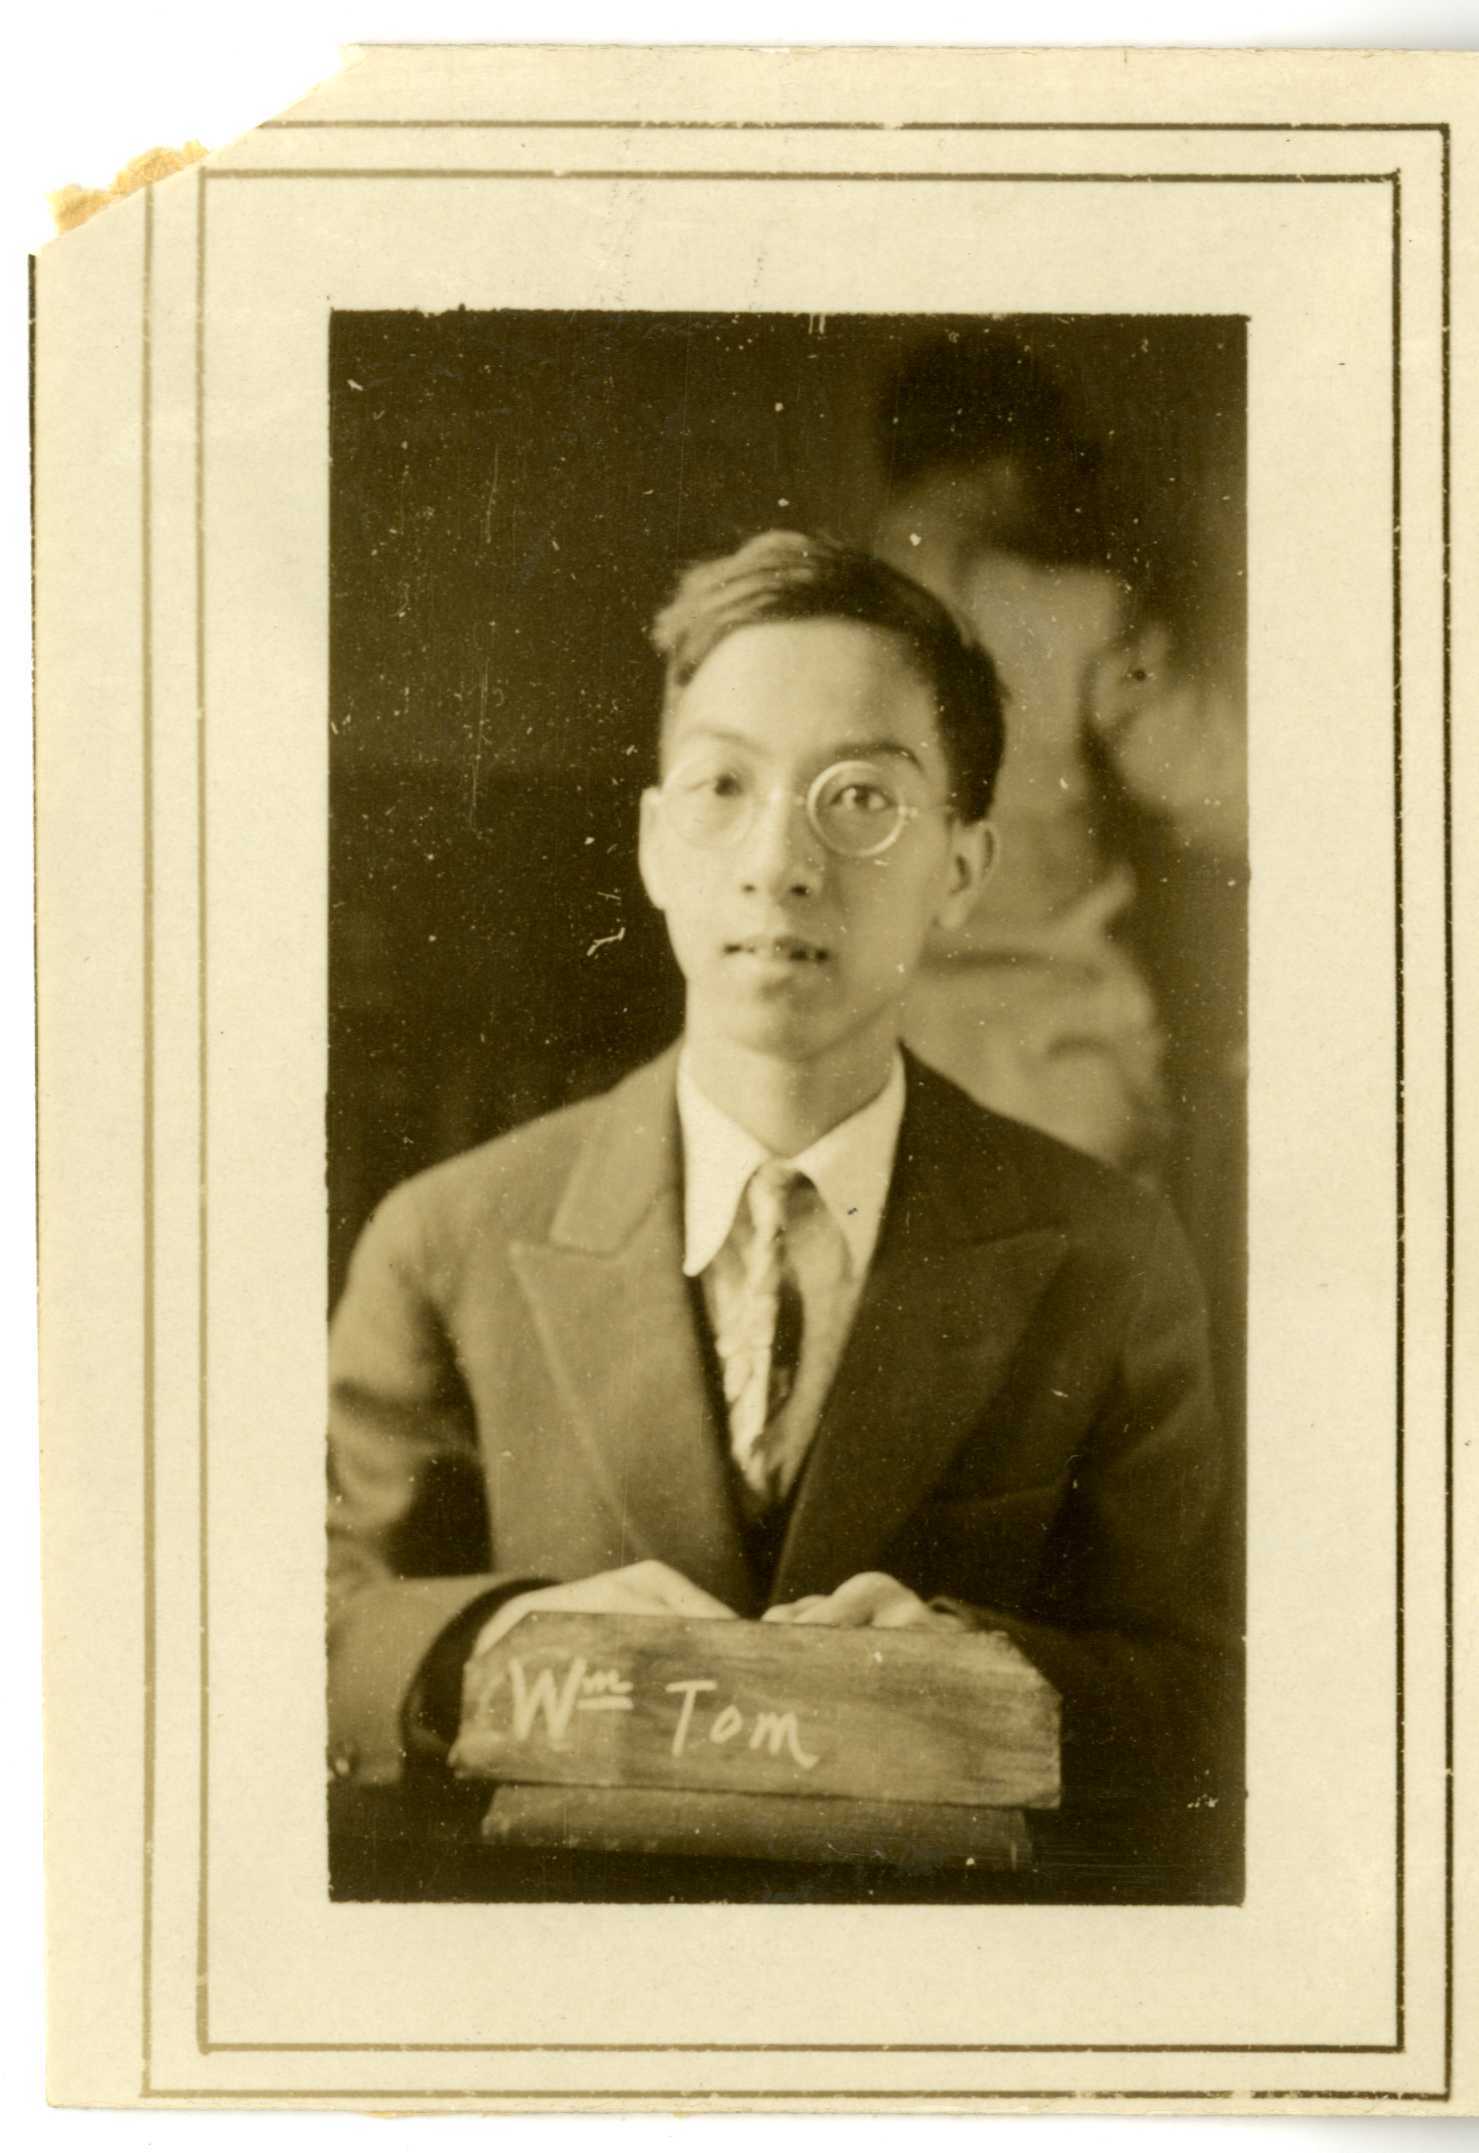 Wm Tom